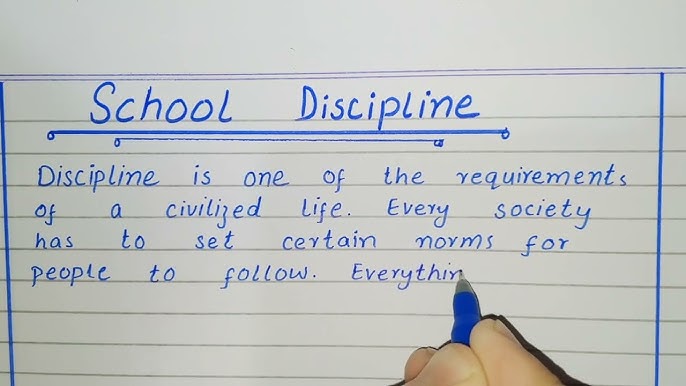 School Discipline
Discipline is one of the requirements
of a civilized life. Every society
has to set certain norms for
people to follow. Everythin